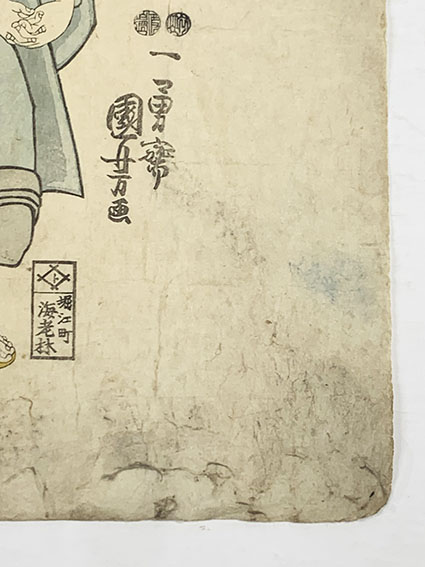 一勇齋
國芳画
上
堀江町
海老林